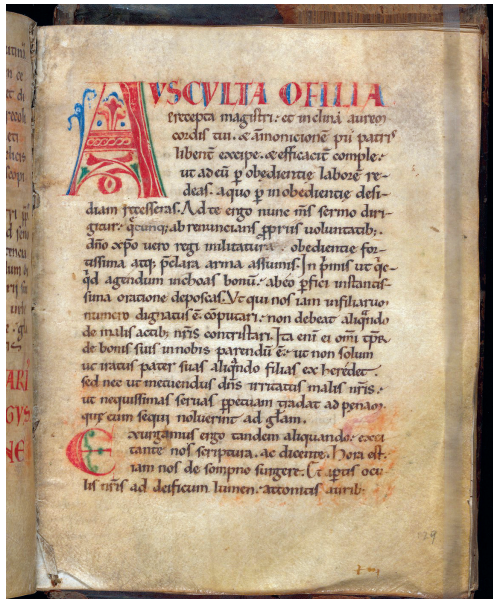 AUSCULTA O FILIA
pcepta magistri· et inclina aurem
cordis tui. & ãmonicionẽ pii patris
libent excipe. & efficacit comple·
ut ad eũ ꝑ obedientię laborẽ re-
deas. a quo ꝑ inobedientię desi-
diam recesseras. Ad te ergo nunc m̃s sermo diri-
gitur· abrenuncians ꝓpriis voluntatib;
dño xp̃o vero regi militatura obedientię for-
tissima atq; p̃clara arma assumis. In p̃mis ut q̃c-
q̃d agendum inchoas bonũ· ab eo ꝑfici instantis-
sima oratione deposcas. Ut qui nos iam in filiarũ
numero dignatus ẽ cõputari· non debeat aliqñdo
de malis actib; nr̃is contristari. Ita eni ei om̃i tp̃r
de bonis suis in nobis parendũ ẽ· ut non solum
ut iratus pater suas aliqñdo filias exheredet.
sed nec ut metuendus dñs irritatus malis nr̃is·
ut nequissimas servas ꝑpetuam tradat ad penam·
quę eum sequi noluerint ad gl̃am.
Exurgamus ergo tandem aliquando· exci
tante nos scriptura. ac dicente. Hora est
iam nos de sompno surgere. Et aptis ocu
lis nr̃is ad deificum lumen· attonitis aurib;
ARI
GVS
NE
129